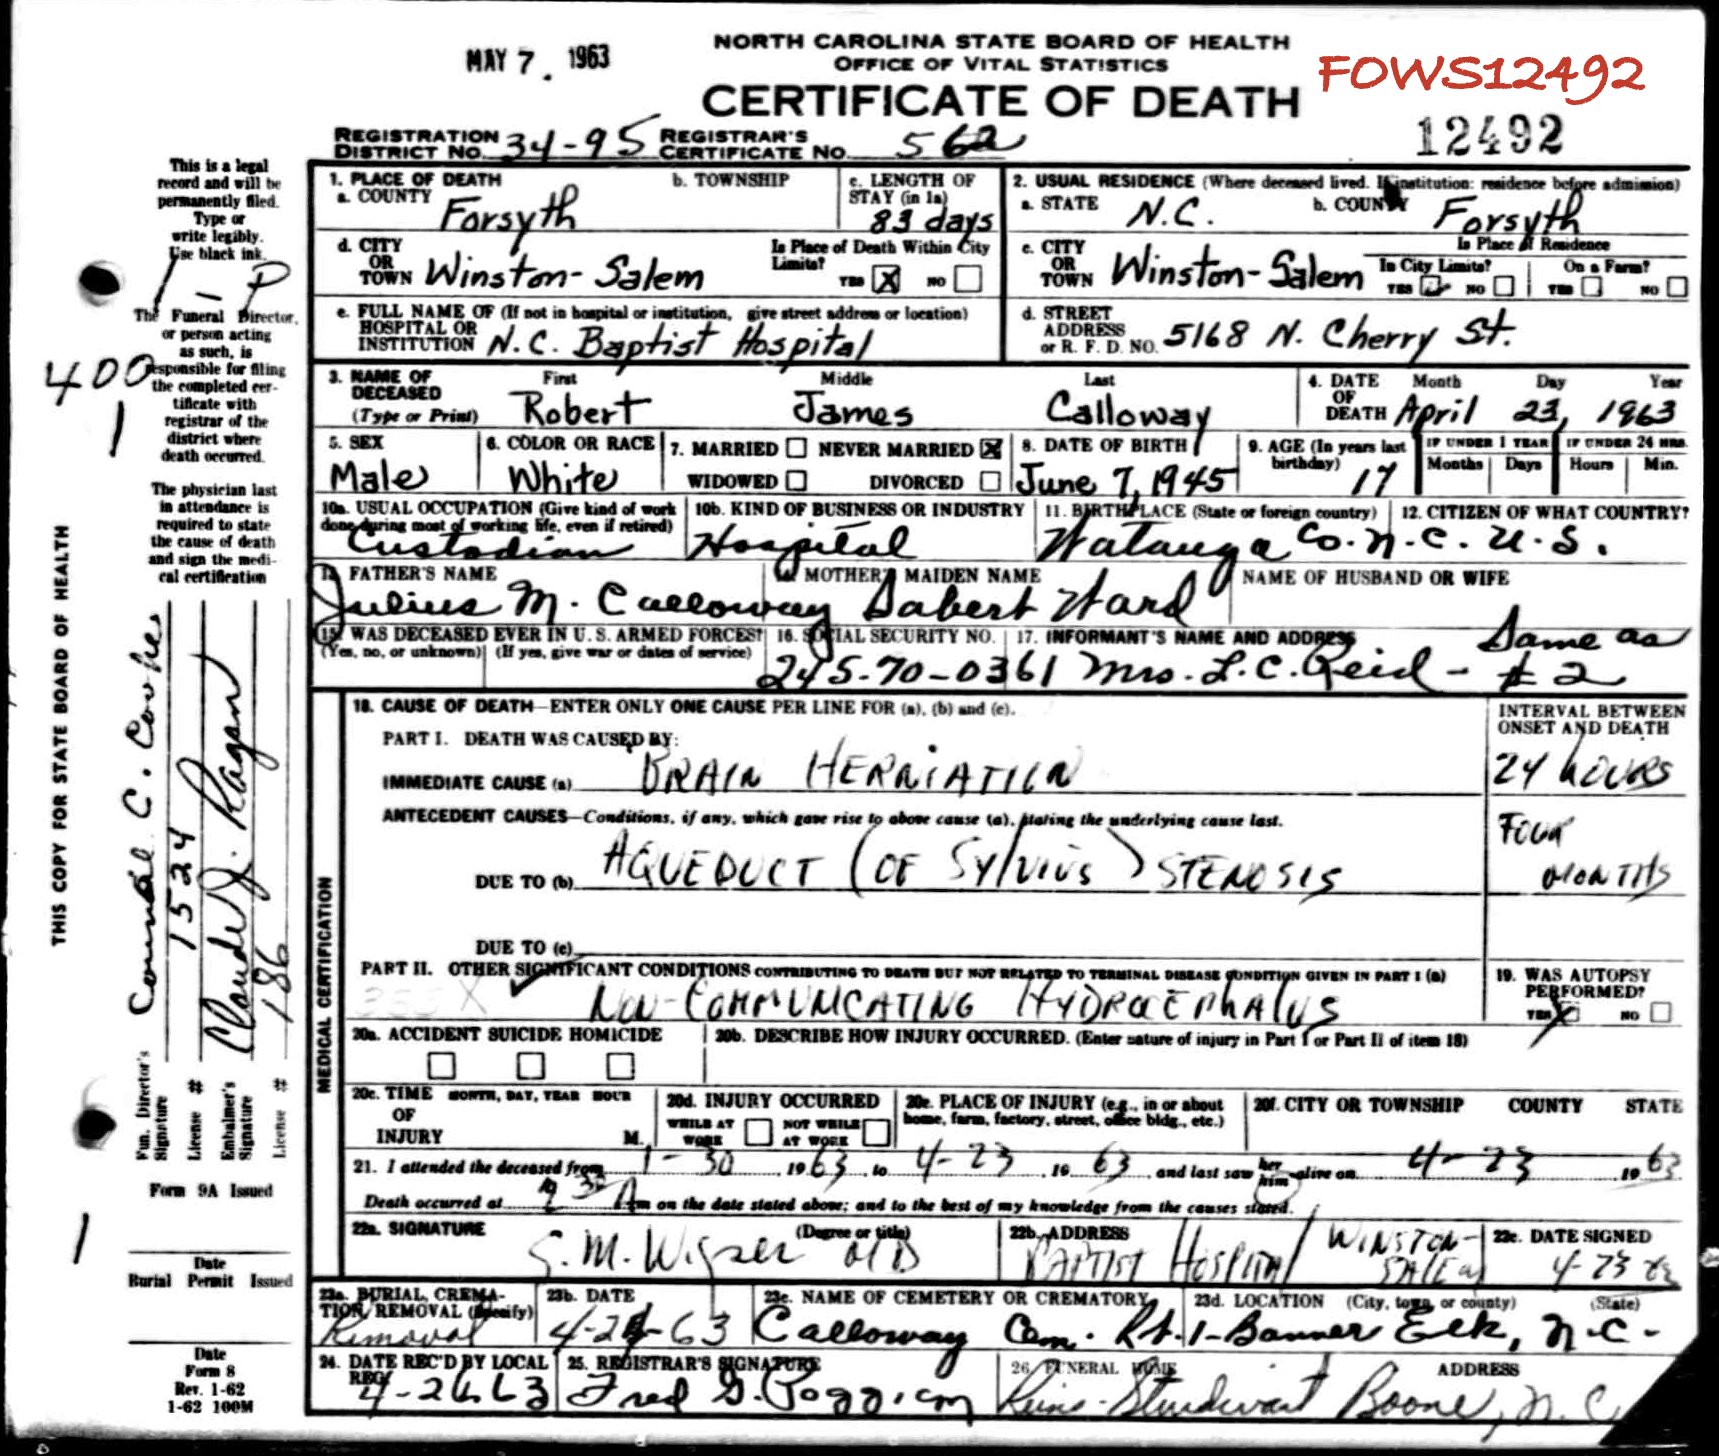 MAY 7. 1963
NORTH CAROLINA STATE BOARD OF HEALTH
OFFICE OF VITAL STATISTICS
CERTIFICATE OF DEATH
FOWS12492
12492
REGISTRATION DISTRICT NO. 34-95 REGISTRAR'S CERTIFICATE NO. 562
This is a legal
record and will be
permanently filed.
Type or
write legibly.
Use black ink.
1 - P
The Funeral Director,
or person acting
as such, is
responsible for filing
the completed cer-
tificate with
registrar of the
district where
death occurred.
400
1
The physician last
in attendance is
required to state
the cause of death
and sign the medi-
cal certification
THIS COPY FOR STATE BOARD OF HEALTH
Fun. Director's Signature
License # 1524
Embalmer's Signature Claude J. Ragan
License # 186
Form 9A Issued
1
Date
Burial Permit Issued
Date
Form 8
Rev. 1-62
1-62 100M
1. PLACE OF DEATH
a. COUNTY Forsyth
b. TOWNSHIP
c. LENGTH OF STAY (in 1a) 83 days
2. USUAL RESIDENCE (Where deceased lived. If institution: residence before admission)
a. STATE N.C.
b. COUNTY Forsyth
d. CITY OR TOWN Winston-Salem
Is Place of Death Within City Limits? YES X NO
c. CITY OR TOWN Winston-Salem
Is Place of Residence
In City Limits? YES NO
On a Farm? YES NO
e. FULL NAME OF (If not in hospital or institution, give street address or location)
HOSPITAL OR INSTITUTION N.C. Baptist Hospital
d. STREET ADDRESS or R. F. D. NO. 5168 N. Cherry St.
3. NAME OF DECEASED (Type or Print)
First Robert
Middle James
Last Calloway
4. DATE OF DEATH
Month Day Year
April 23, 1963
5. SEX Male
6. COLOR OR RACE White
7. MARRIED NEVER MARRIED X
WIDOWED DIVORCED
8. DATE OF BIRTH June 7, 1945
9. AGE (In years last birthday) 17
IF UNDER 1 YEAR Months Days
IF UNDER 24 HRS. Hours Min.
10a. USUAL OCCUPATION (Give kind of work done during most of working life, even if retired) Custodian
10b. KIND OF BUSINESS OR INDUSTRY Hospital
11. BIRTHPLACE (State or foreign country) Watauga Co. N.C.
12. CITIZEN OF WHAT COUNTRY? U.S.
13. FATHER'S NAME Julius M. Calloway
MOTHER'S MAIDEN NAME Ward
NAME OF HUSBAND OR WIFE
15. WAS DECEASED EVER IN U. S. ARMED FORCES?
(Yes, no, or unknown) (If yes, give war or dates of service)
16. SOCIAL SECURITY NO. 245-70-0361
17. INFORMANT'S NAME AND ADDRESS Mrs. L.C. Reid - Same as # 2
MEDICAL CERTIFICATION
18. CAUSE OF DEATH—ENTER ONLY ONE CAUSE PER LINE FOR (a), (b) and (c).
INTERVAL BETWEEN ONSET AND DEATH
PART I. DEATH WAS CAUSED BY:
IMMEDIATE CAUSE (a) BRAIN HERNIATION
24 HOURS
ANTECEDENT CAUSES—Conditions, if any, which gave rise to above cause (a), stating the underlying cause last.
DUE TO (b) AQUEDUCT (OF SYLVIUS) STENOSIS
FOUR MONTHS
DUE TO (c)
PART II. OTHER SIGNIFICANT CONDITIONS CONTRIBUTING TO DEATH BUT NOT RELATED TO TERMINAL DISEASE CONDITION GIVEN IN PART I (a)
NON-COMMUNICATING HYDROCEPHALUS
19. WAS AUTOPSY PERFORMED? YES X NO
20a. ACCIDENT SUICIDE HOMICIDE
20b. DESCRIBE HOW INJURY OCCURRED. (Enter nature of injury in Part I or Part II of item 18)
20c. TIME OF INJURY MONTH, DAY, YEAR HOUR M.
20d. INJURY OCCURRED
WHILE AT WORK NOT WHILE AT WORK
20e. PLACE OF INJURY (e.g., in or about home, farm, factory, street, office bldg., etc.)
20f. CITY OR TOWNSHIP COUNTY STATE
21. I attended the deceased from 1-30 1963 to 4-23 1963 and last saw her him alive on 4-23 1963
Death occurred at m on the date stated above; and to the best of my knowledge from the causes stated.
22a. SIGNATURE (Degree or title) MD
22b. ADDRESS BAPTIST HOSPITAL WINSTON-SALEM
22c. DATE SIGNED 4-23 63
23a. BURIAL, CREMATION, REMOVAL (Specify) Removal
23b. DATE 4-24-63
23c. NAME OF CEMETERY OR CREMATORY Calloway Cem.
23d. LOCATION (City, town, or county) (State) Rt. 1-Banner Elk, N.C.
24. DATE REC'D BY LOCAL REG. 4-26-63
25. REGISTRAR'S SIGNATURE Fred G.
26. FUNERAL HOME ADDRESS Reins-Sturdivant Boone, N.C.